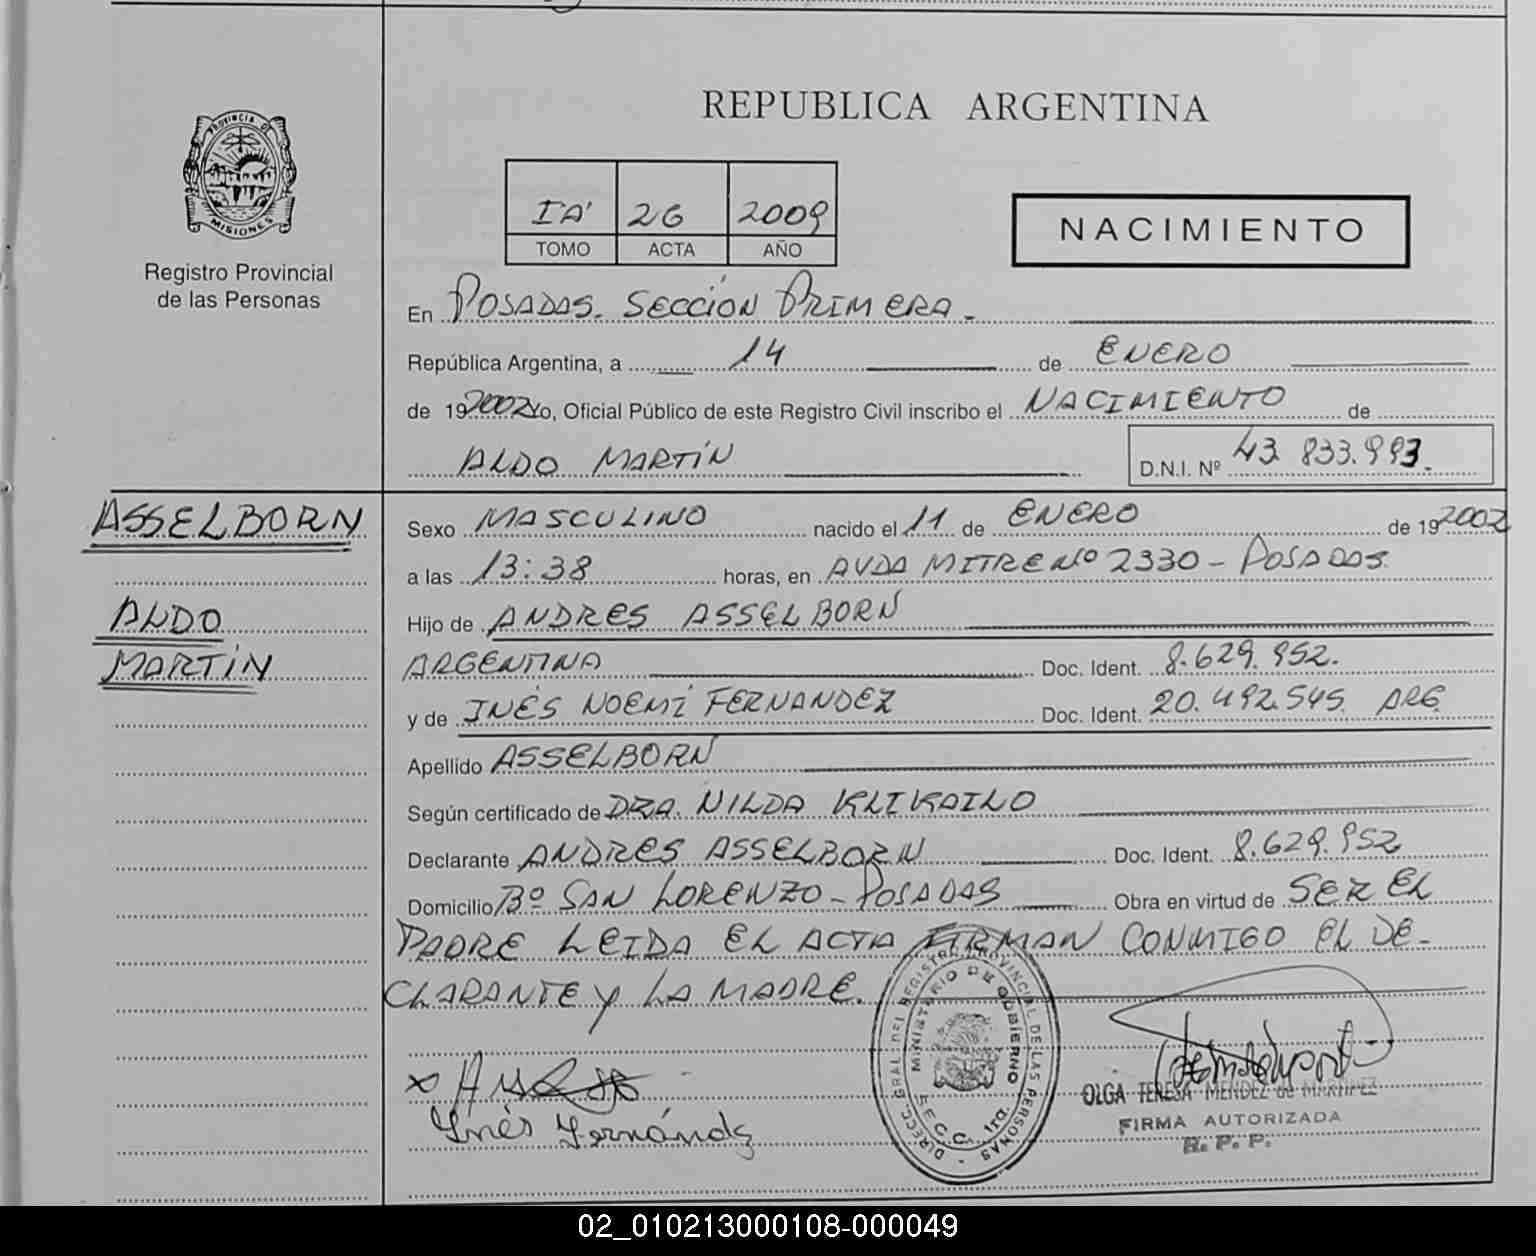 REPUBLICA ARGENTINA
PROVINCIA DE
MISIONES
Registro Provincial
de las Personas
IA' 26 2009
TOMO ACTA AÑO
NACIMIENTO
En POSADAS. SECCIÓN PRIMERA.
República Argentina, a 14 de ENERO
de 192002 Yo, Oficial Público de este Registro Civil inscribo el NACIMIENTO de
ALDO MARTÍN D.N.I. Nº 43.833.993.
ASSELBORN
ALDO
MARTÍN
Sexo MASCULINO nacido el 11 de ENERO de 192002
a las 13:38 horas, en AVDA MITRE Nº 2330 - POSADAS.
Hijo de ANDRES ASSELBORN
ARGENTINA Doc. Ident. 8.629.952.
y de INÉS NOEMÍ FERNANDEZ Doc. Ident. 20.492.545. ARG.
Apellido ASSELBORN
Según certificado de DRA. NILDA KLIKAILO
Declarante ANDRES ASSELBORN Doc. Ident. 8.629.952
Domicilio Bº SAN LORENZO - POSADAS Obra en virtud de SER EL
PADRE LEIDA EL ACTA FIRMAN CONMIGO EL DE-
CLARANTE Y LA MADRE.
DIRECC. GRAL. DEL REGISTRO PROVINCIAL DE LAS PERSONAS
MINISTERIO DE GOBIERNO
SECC. 1ra.
Inés Fernández
OLGA TERESA MENDEZ de MARTINEZ
FIRMA AUTORIZADA
R. P. P.
02_010213000108-000049